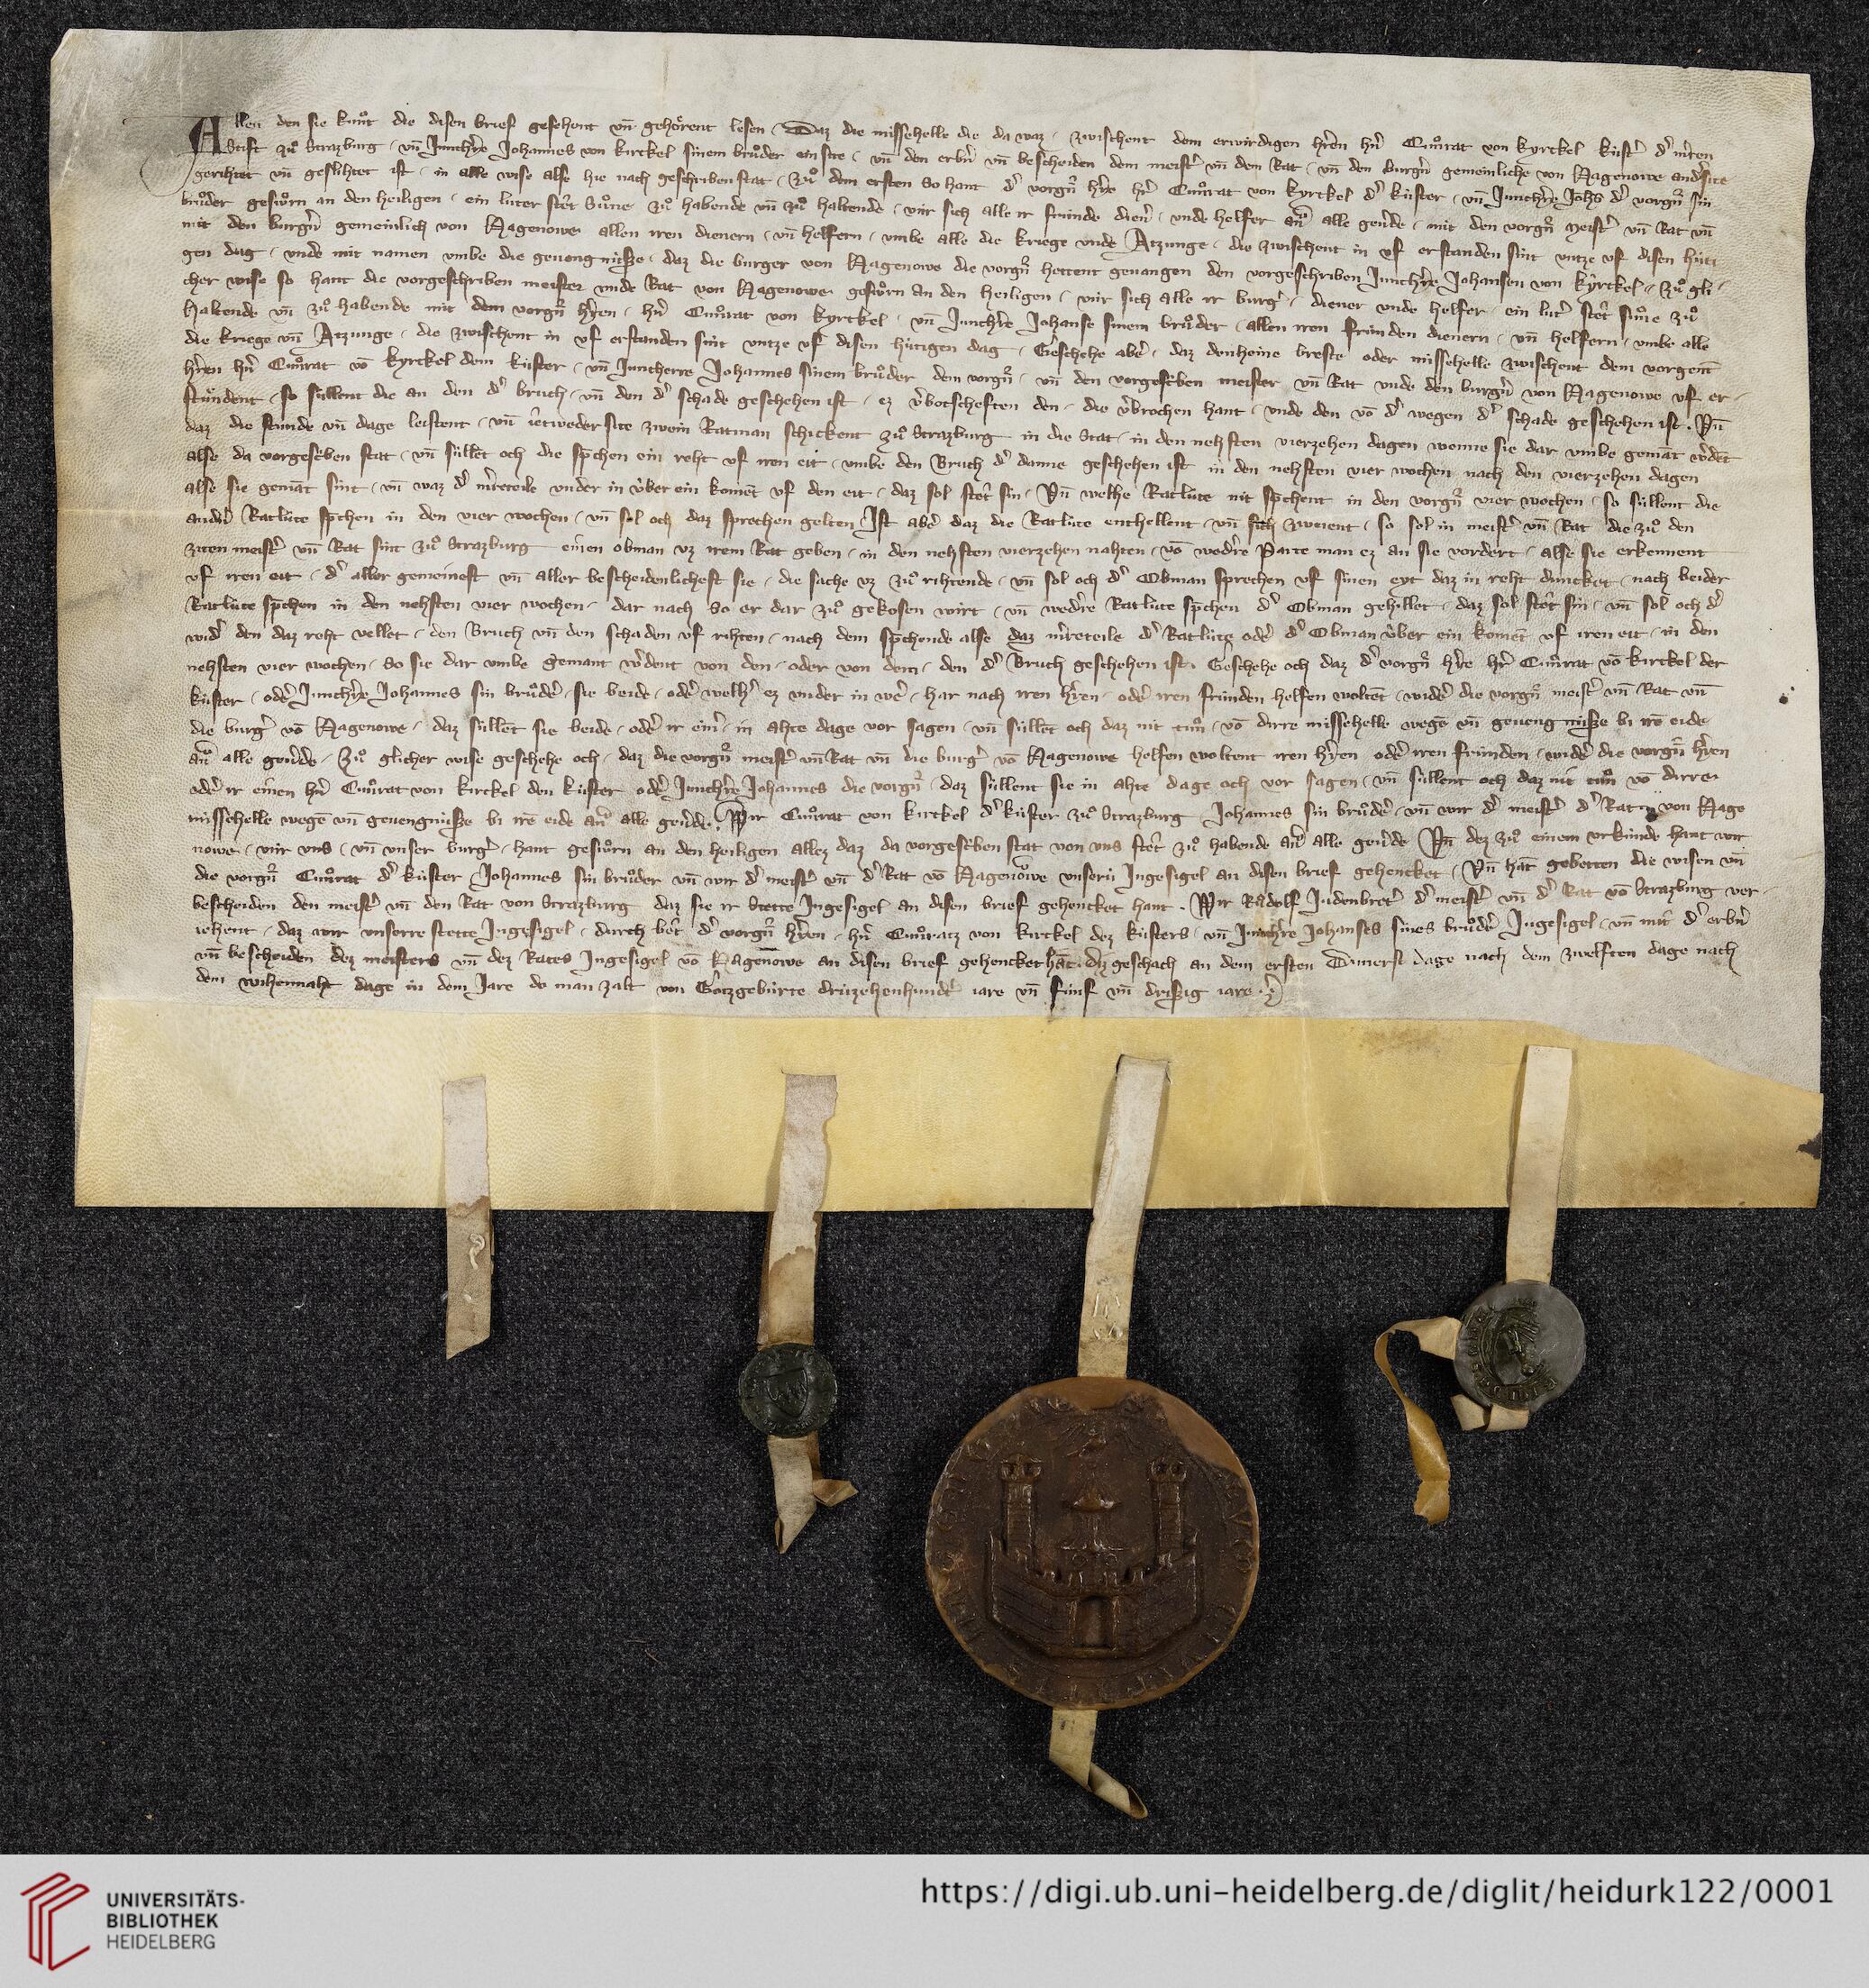 Allen den sie kunͦt die disen brief gesehent vn̄ gehoͤrent lesen . Daz die missehelle die da waz . zwischent dem erwirdigen hr̄en hn̄ Cuͦnrat von kyrckel kúster dˀ mr̄en
Stift zuͦ Strazburg . vn̄ Junchr̄re Johannes von kirckel sinem bruͦder ein site . vn̄ den erbn̄ vn̄ bescheiden dem meistˀ vn̄ dem Rat . vn̄ den burgˀn gemeinliche von Hagenowe andˀsite
gerihtet vn̄ geslihtet ist . in alle wise alse hie nach geschriben stat . Zuͦ dem ersten so hant dˀ vorgn̄ hr̄re hr̄ Cuͦnrat von kyrckel dˀ kúster . vn̄ Junchr̄re Johs̄ dˀ vorgn̄ sin
bruͦder geswͦrn an den heiligen . ein luter stet suͦne zuͦ habende vn̄ zuͦ haltende . vúr sich alle ir frúnde dienˀ . vnde helfer anͤ alle geuˀde . mit den vorgn̄ meistˀ vn̄ Rat vn̄
mit den burgˀn gemeinlich von Hagenowe allen iren dienern . vn̄ helfern . vmbe alle die kriege vnde Atzunge . die zwischent in vf erstanden sint vntze vf disen húti
gen dag . vnde mit namen vmbe die geuengnúsze . daz die burger von Hagenowe die vorgn̄ hettent geuangen den vorgeschriben Junchr̄re Johansen von kyrckel . Zuͦ gli
cher wise so hant die vorgeschriben meister vnde Rat von Hagenowe geswͦrn an den heiligen . vúr sich alle ir burgˀ . diener vnde helfer ein lutˀ stet suͦne zuͦ
haltende vn̄ zuͦ habende mit dem vorgn̄ hr̄ren . hn̄ Cuͦnrat von kyrckel . vn̄ Junchr̄re Johanse sinem bruͦder . allen iren frúnden dienern . vn̄ helfern . vmbe alle
die kriege vn̄ Atzunge . die zwischent in vf erstanden sint vntze vf disen hútigen dag . Geschehe abˀ . daz denheine breste oder missehelle zwischent dem vorgent̄
hr̄ren hn̄ Cuͦnrat vō kyrckel dem kúster . vn̄ Juncherre Johannes sinem bruͦder dem vorgn̄ . vn̄ den vorgescˀben meister vn̄ Rat vnde den burgˀn von Hagenowe vf er
stúndent . so súllent die an den dˀ bruch . vn̄ den dˀ schade geschehen ist . ez vˀbotscheften den . die vˀbrochen hant . vnde den vō dˀ wegen dˀ schade geschehen ist . Vn̄
daz die frúnde vn̄ dage leistent . vn̄ ietweder site zwein Ratman schickent zuͦ Strazburg in die Stat . in den nehsten vierzehen dagen wenne sie dar vmbe gemant wˀdēt
alse da vorgescˀben stat . vn̄ súllēt och die spˀchen ein reht vf iren eit . vmbe den Bruch dˀ danne geschehen ist in den nehsten vier wochen nach den vierzehen dagen
alse sie gemāt sint . vn̄ waz dˀ mˀreteile vnder in úber ein komēt vf den eit . daz sol stet sin . Vn̄ welhe Ratlúte nit spˀchent in den vorgn̄ vier wochen . so súllent die
andˀn Ratlúte spˀchen in den vier wochen . vn̄ sol och daz sprechen gelten . Ist abˀ daz die Ratlúte enthellent . vn̄ sich zweient . so sol in meistˀ vn̄ Rat die zuͦ den
ziten meistˀ vn̄ Rat sint zuͦ Strazburg einen obman vz irem Rat geben . in den nehsten vierzehen nahten . vō wedˀre Parte man ez an sie vordert . alse sie erkennent
vf iren eit . dˀ aller gemeinest vn̄ aller bescheidenlichest sie . die sache vz zuͦ rihtende . vn̄ sol och dˀ Obman sprechen vf sinen eyt daz in reht duncket . nach beider
Ratlúte spˀchen in den nehsten vier wochen . dar nach so er dar zuͦ gekosen wirt . vn̄ wedˀre Ratlúte spˀchen dˀ Obman gehillet . daz sol stet sin . vn̄ sol och dˀ
widˀ den daz reht vellet . den Bruch vn̄ den schaden vf rihten . nach dem spˀchende alse daz mˀreteile dˀ Ratlúte odˀ dˀ Obman úber ein komēt vf iren eit . in den
nehsten vier wochen . so sie dar vmbe gemant wˀdent von den . oder von dem . den dˀ Bruch geschehen ist . Geschehe och daz dˀ vorgn̄ hr̄re hr̄ Cuͦnrat vō kirckel der
kúster . odˀ Junchr̄re Johannes sin bruͦdˀ . sie beide . odˀ welhˀ ez vnder in wˀe . har nach iren hr̄ren . odˀ iren frúnden helfen woltēt . widˀ die vorgn̄ meistˀ vn̄ Rat vn̄
die burgˀ vō Hagenowe . daz súllēt sie beide . odˀ ir einˀ . in ahte dage vor sagen . vn̄ súllēt och daz nit tuͦn . vō dirre missehelle wegē vn̄ geuengnúsze bi irē eide
anͤ alle geuˀde . Zuͦ glicher wise geschehe och . daz die vorgn̄ meistˀ vn̄ Rat vn̄ die burgˀ vō Hagenowe helfen woltent iren hr̄ren odˀ iren frúnden . widˀ die vorgn̄ hr̄ren
odˀ ir einen hn̄ Cuͦnrat von kirckel den kúster odˀ Junchr̄re Johannes die vorgn̄ . daz súllent sie in ahte dage och vor sagen . vn̄ súllent och daz nit tuͦn vō dirre
missehelle wegē vn̄ geuengnúsze bi irē eide anͤ alle geuˀde . Wir Cuͦnrat von kirckel dˀ kúster zuͦ Strazburg Johannes sin bruͦdˀ . vn̄ wir dˀ meistˀ dˀ Rat von Hage
nowe . vúr vns . vn̄ vnser burgˀ . hant geswͦrn an den heiligen allez daz da vorgescˀben stat von vns stet zuͦ habende anͤ alle geuˀde Vn̄ dez zuͦ einem vrkúnde hant wir
die vorgn̄ Cuͦnrat dˀ kúster Johannes sin bruͦder vn̄ wir dˀ meistˀ vn̄ dˀ Rat vō Hagenowe vnserú Ingesigel an disen brief gehencket . Vn̄ hāt gebetten die wisen vn̄
bescheiden den meistˀ vn̄ den Rat von Strazburg daz sie ir Stette Ingesigel an disen brief gehencket hant . Wir Ruͦdolf Judenbretˀ dˀ meistˀ vn̄ dˀ Rat vō Strazburg ver
iehent . daz wir vnserre stette Ingesigel . durch bet dˀ vorgn̄ hr̄ren . hn̄ Cuͦnratz von kirckel dez kústers . vn̄ Junchr̄re Johanses sines bruͦdˀ Ingesigel . vn̄ mit dˀ erbn̄
vn̄ bescheiden dez meisters vn̄ dez Rates Ingesigel vō Hagenowe an disen brief gehencket hāt . Diz geschach an dem ersten Dunerst dage nach dem zwelften dage nach
dem wihennaht dage in dem Jare do man zalt von Gotzgebúrte drúzehenhundˀt iare vn̄ fúnf vn̄ driszig iare .
UNIVERSITÄTS-
BIBLIOTHEK
HEIDELBERG
https://digi.ub.uni-heidelberg.de/diglit/heidurk122/0001